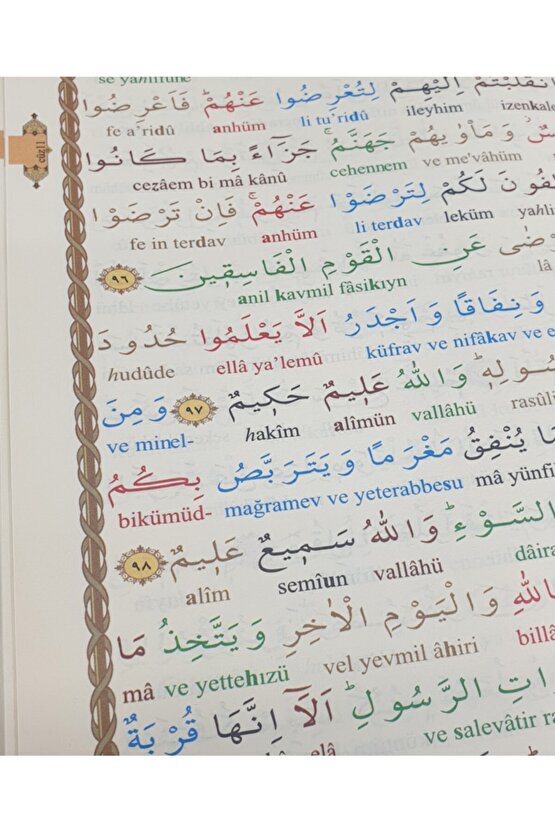 انْقَلَبْتُمْ اِلَيْهِمْ لِتُعْرِضُوا عَنْهُمْ فَاَعْرِضُوا
izenkale ileyhim li tu'ridû anhüm fe a'ridû
وَمَأْوٰيهُمْ جَهَنَّمُ جَزَاءً بِمَا كَانُوا
ve me'vâhüm cehennem cezâem bi mâ kânû
لَكُمْ لِتَرْضَوْا عَنْهُمْ فَاِنْ تَرْضَوْا
leküm li terdav anhüm fe in terdav
عَنِ الْقَوْمِ الْفَاسِقِينَ ٩٦
lâ anil kavmil fâsikıyn
cüz11
وَنِفَاقًا وَاَجْدَرُ اَلَّا يَعْلَمُوا حُدُودَ
küfrav ve nifâkav ve e ellâ ya'lemû hudûde
وَاللّٰهُ عَلِيمٌ حَكِيمٌ ٩٧ وَمِنَ
rasûli vallâhü alîmün hakîm ve minel-
يُنْفِقُ مَغْرَمًا وَيَتَرَبَّصُ بِكُمُ
mâ yünfi mağramev ve yeterabbesu bikümüd-
السَّوْءِ وَاللّٰهُ سَمِيعٌ عَلِيمٌ ٩٨
dâira vallâhü semîun alîm
وَالْيَوْمِ الْاٰخِرِ وَيَتَّخِذُ مَا
billâ vel yevmil âhiri ve yettehızü mâ
الرَّسُولِ اَلَا اِنَّهَا قُرْبَةٌ
ve salevâtir ra elâ